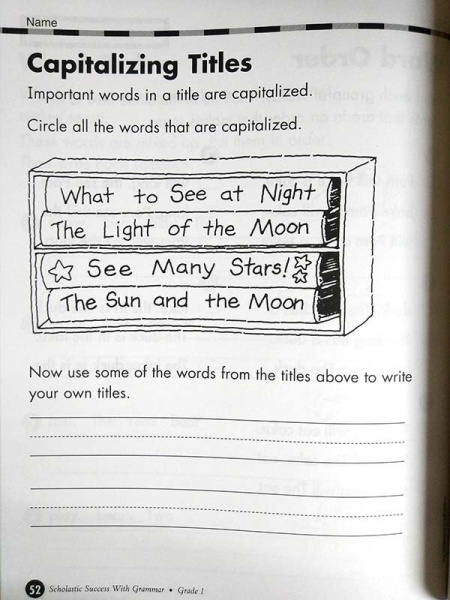 Name
Capitalizing Titles
Important words in a title are capitalized.
Circle all the words that are capitalized.
What to See at Night
The Light of the Moon
See Many Stars!
The Sun and the Moon
Now use some of the words from the titles above to write
your own titles.
52 Scholastic Success With Grammar • Grade 1